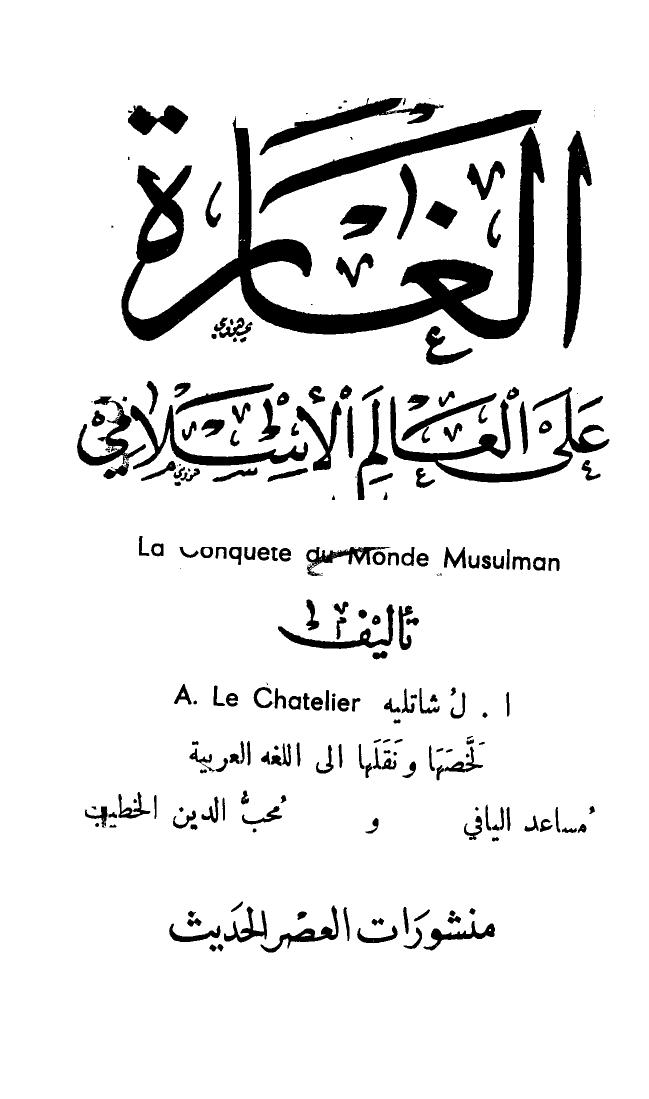 الغارة
على العالم الإسلامي
La Conquete du Monde Musulman
تأليف
ا . لُ شاتليه A. Le Chatelier
لَخَّصَهَا و نَقَلَها الى اللغه العربية
مُساعد اليافي و مُحبُّ الدين الخطيب
منشورَات العصْر الحَديث